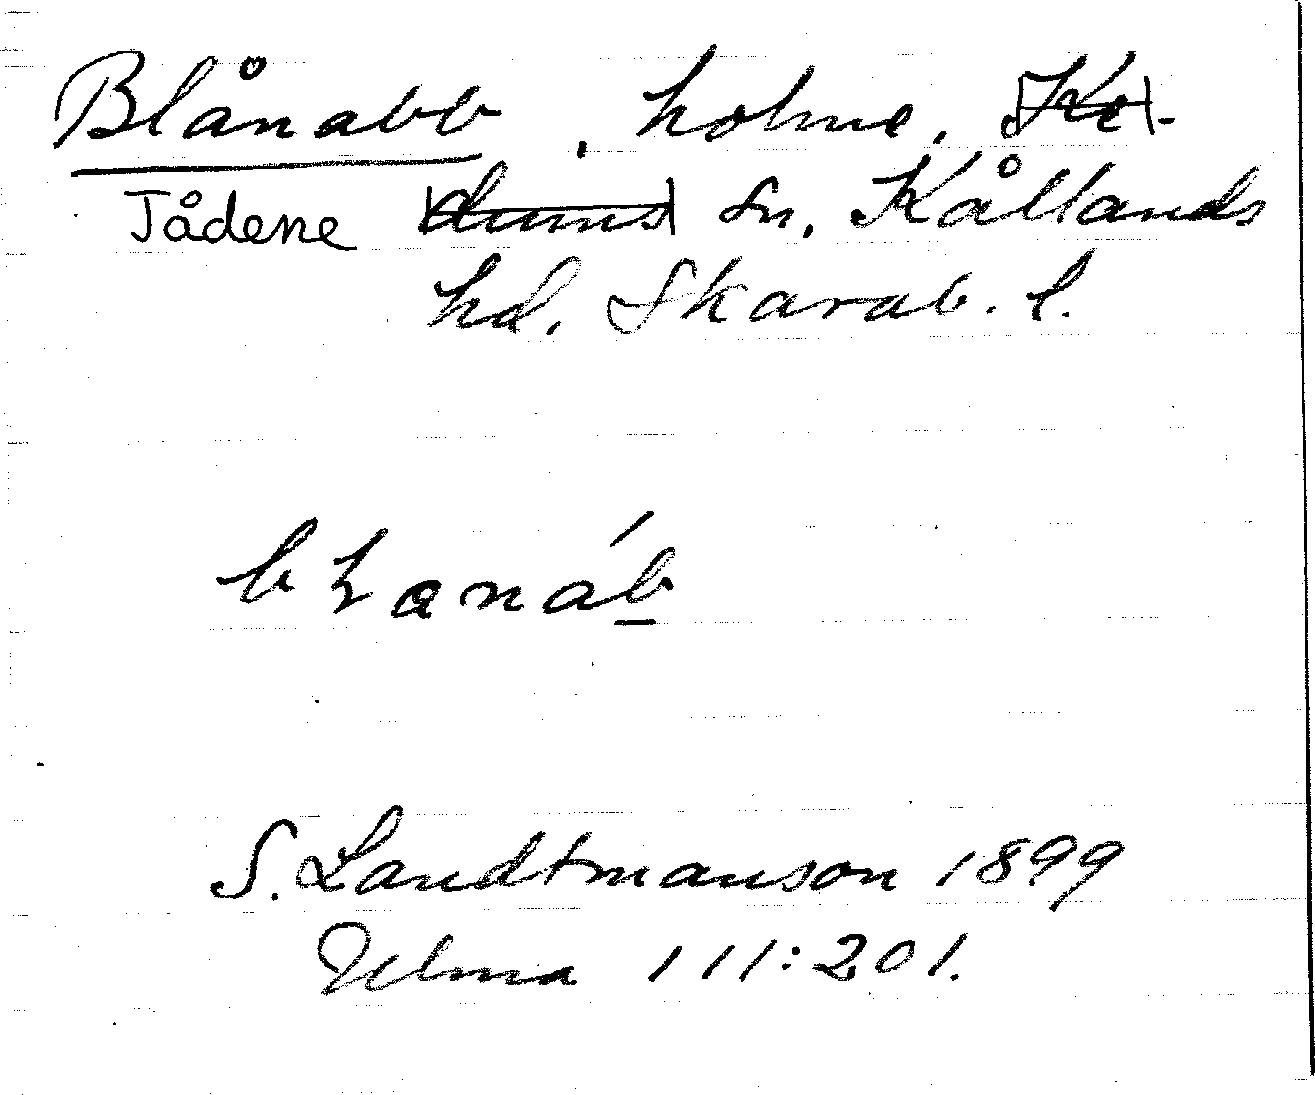 Blånabb, holme, Ke-
Tådene dums sn, Kållands
hd. Skarab. l.
bLanáb
S. Landtmanson 1899
Ulma 111:201.